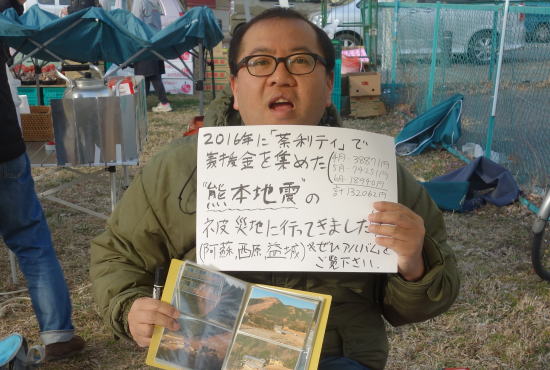 2016年に「茶利ティ」で
義援金を集めた
4月 38871円
5月 74251円
6月 18940円
計132062円
"熊本地震"の
被災地に行ってきました
(阿蘇、西原、益城)※ぜひアルバムを
ご覧下さい.